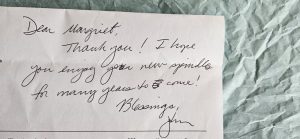 Dear Margriet,
Thank you! I hope
you enjoy your new spindle
for many years to come!
Blessings,